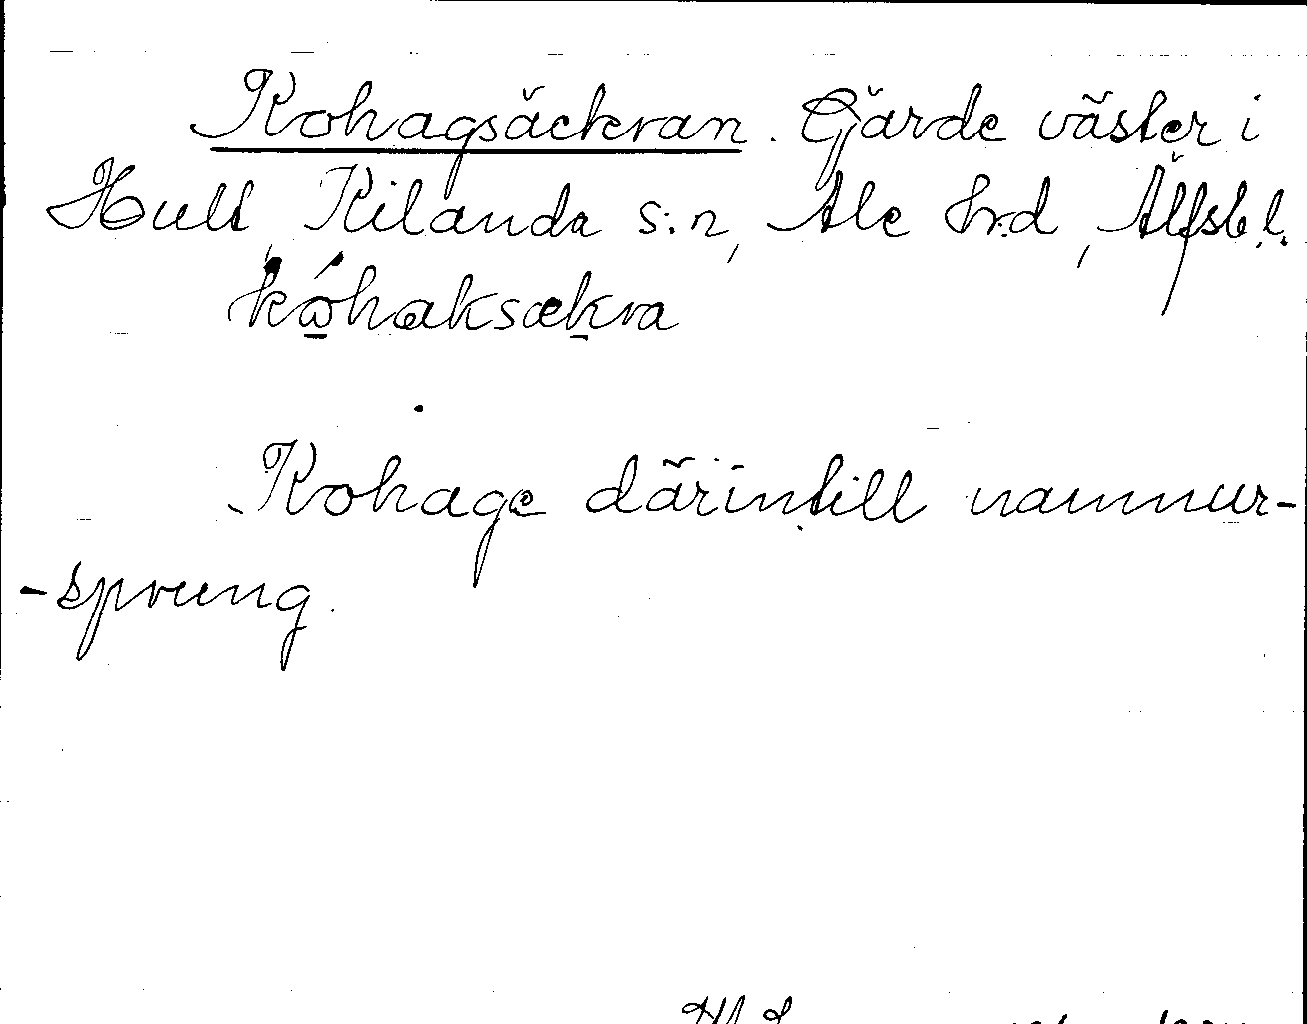 Kohagsäckran. Gärde väster i
Hult, Kilanda s:n, Ale hrd, Älfsb. l.
kóhaksækra
Kohage därintill namnur-
-sprung.